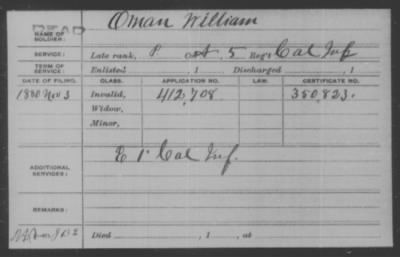 DEAD
NAME OF SOLDIER: Oman William
SERVICE: Late rank, P Co. A, 5 Reg't Cal Inf
TERM OF SERVICE: Enlisted , 1 Discharged , 1
DATE OF FILING. CLASS. APPLICATION NO. LAW. CERTIFICATE NO.
1880 Nov 3 Invalid, 412,708 350,823.
Widow,
Minor,
ADDITIONAL SERVICES: E 1" Cal Inf.
REMARKS:
Died , 1 , at